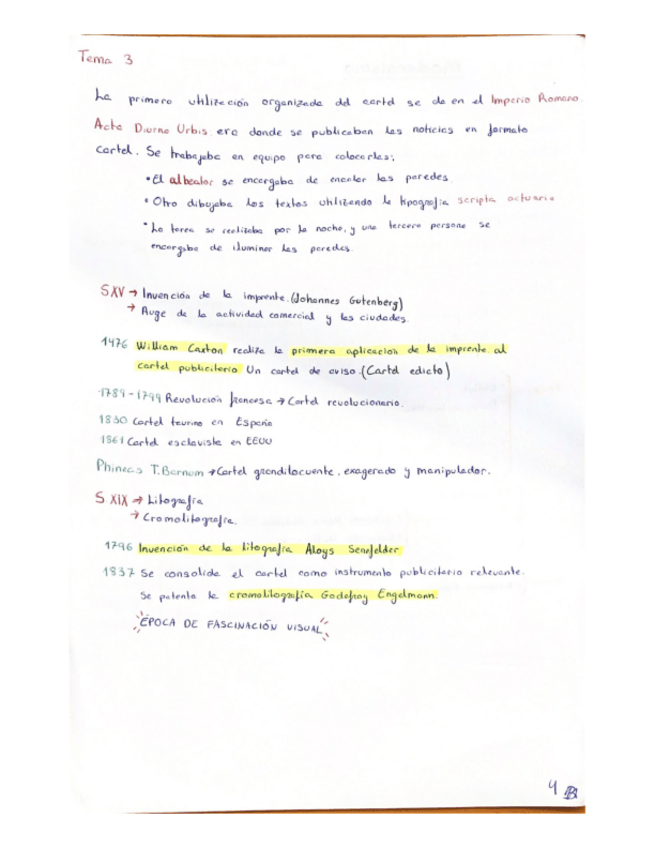 Tema 3
La primera utilización organizada del cartel se da en el Imperio Romano
Acta Diurna Urbis era donde se publicaban las noticias en formato
cartel. Se trabajaba en equipo para colocarlas:
• El albeator se encargaba de encalar las paredes.
• Otro dibujaba los textos utilizando la tipografía scripta actuaria
• La tarea se realizaba por la noche, y una tercera persona se
encargaba de iluminar las paredes.
S XV → Invención de la imprenta. (Johannes Gutenberg)
→ Auge de la actividad comercial y las ciudades.
1476 William Caxton realiza la primera aplicación de la imprenta al
cartel publicitario Un cartel de aviso. (Cartel edicto)
1789-1799 Revolución francesa → Cartel revolucionario.
1830 Cartel taurino en España
1861 Cartel esclavista en EEUU
Phineas T. Barnum → Cartel grandilocuente, exagerado y manipulador.
S XIX → Litografía
→ Cromolitografía.
1796 Invención de la litografía Aloys Senefelder
1837 Se consolida el cartel como instrumento publicitario relevante.
Se patenta la cromolitografía Godefroy Engelmann.
ÉPOCA DE FASCINACIÓN VISUAL
4